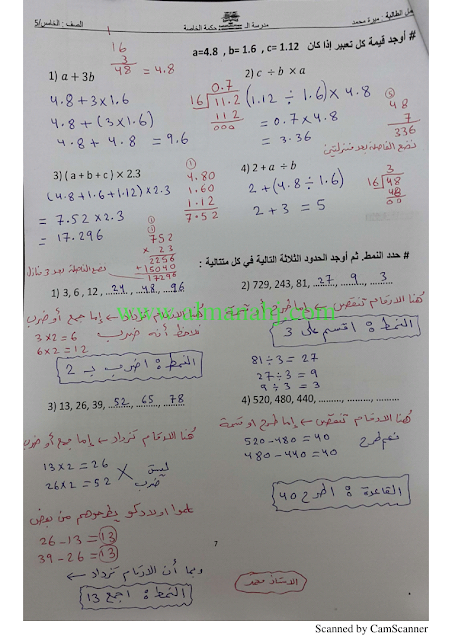 الصف : الخامس/5
مدرسة ال حكمة الخاصة
الطالبة : ميرة محمد
# أوجد قيمة كل تعبير إذا كان a=4.8 , b= 1.6 , c= 1.12
1) a + 3b
16
3
48 = 4.8
4.8 + 3 x 1.6
4.8 + (3 x 1.6)
4.8 + 4.8 = 9.6
2) c ÷ b x a
(1.12 ÷ 1.6) x 4.8
= 0.7 x 4.8
= 3.36
0.7
16 11.2
112
000
48
7
336
نضع الفاصلة بعد منزلتين
3) ( a + b + c ) x 2.3
(4.8 + 1.6 + 1.12) x 2.3
= 7.52 x 2.3
= 17.296
4.80
1.60
1.12
7.52
752
x 23
2256
+15040
17296
نضع الفاصلة بعد 3 منازل
4) 2 + a ÷ b
2 + (4.8 ÷ 1.6)
2 + 3 = 5
3
16 48
48
00
# حدد النمط. ثم أوجد الحدود الثلاثة التالية في كل متتالية :
1) 3, 6 , 12 , 24 , 48 , 96
هنا الأرقام تزداد ← إما جمع أو ضرب
3 x 2 = 6
6 x 2 = 12
نلاحظ أنه ضرب
النمط : اضرب بـ 2
2) 729, 243, 81, 27 , 9 , 3
هنا الأرقام تنقص ← إما طرح أو قسمة
النمط : اقسم على 3
81 ÷ 3 = 27
27 ÷ 3 = 9
9 ÷ 3 = 3
www.almanahj.com
3) 13, 26, 39, 52 , 65 , 78
هنا الأرقام تزداد ← إما جمع أو ضرب
13 x 2 = 26
26 x 2 = 52
ليس ضرب
من بعض
26 - 13 = 13
39 - 26 = 13
وبما أن الأرقام تزداد ←
النمط : اجمع 13
4) 520, 480, 440, ........., ........., .........
هنا الأرقام تنقص ← إما طرح أو قسمة
نعم طرح
520 - 480 = 40
480 - 440 = 40
القاعدة : اطرح 40
7
الاستاذ محمد
Scanned by CamScanner